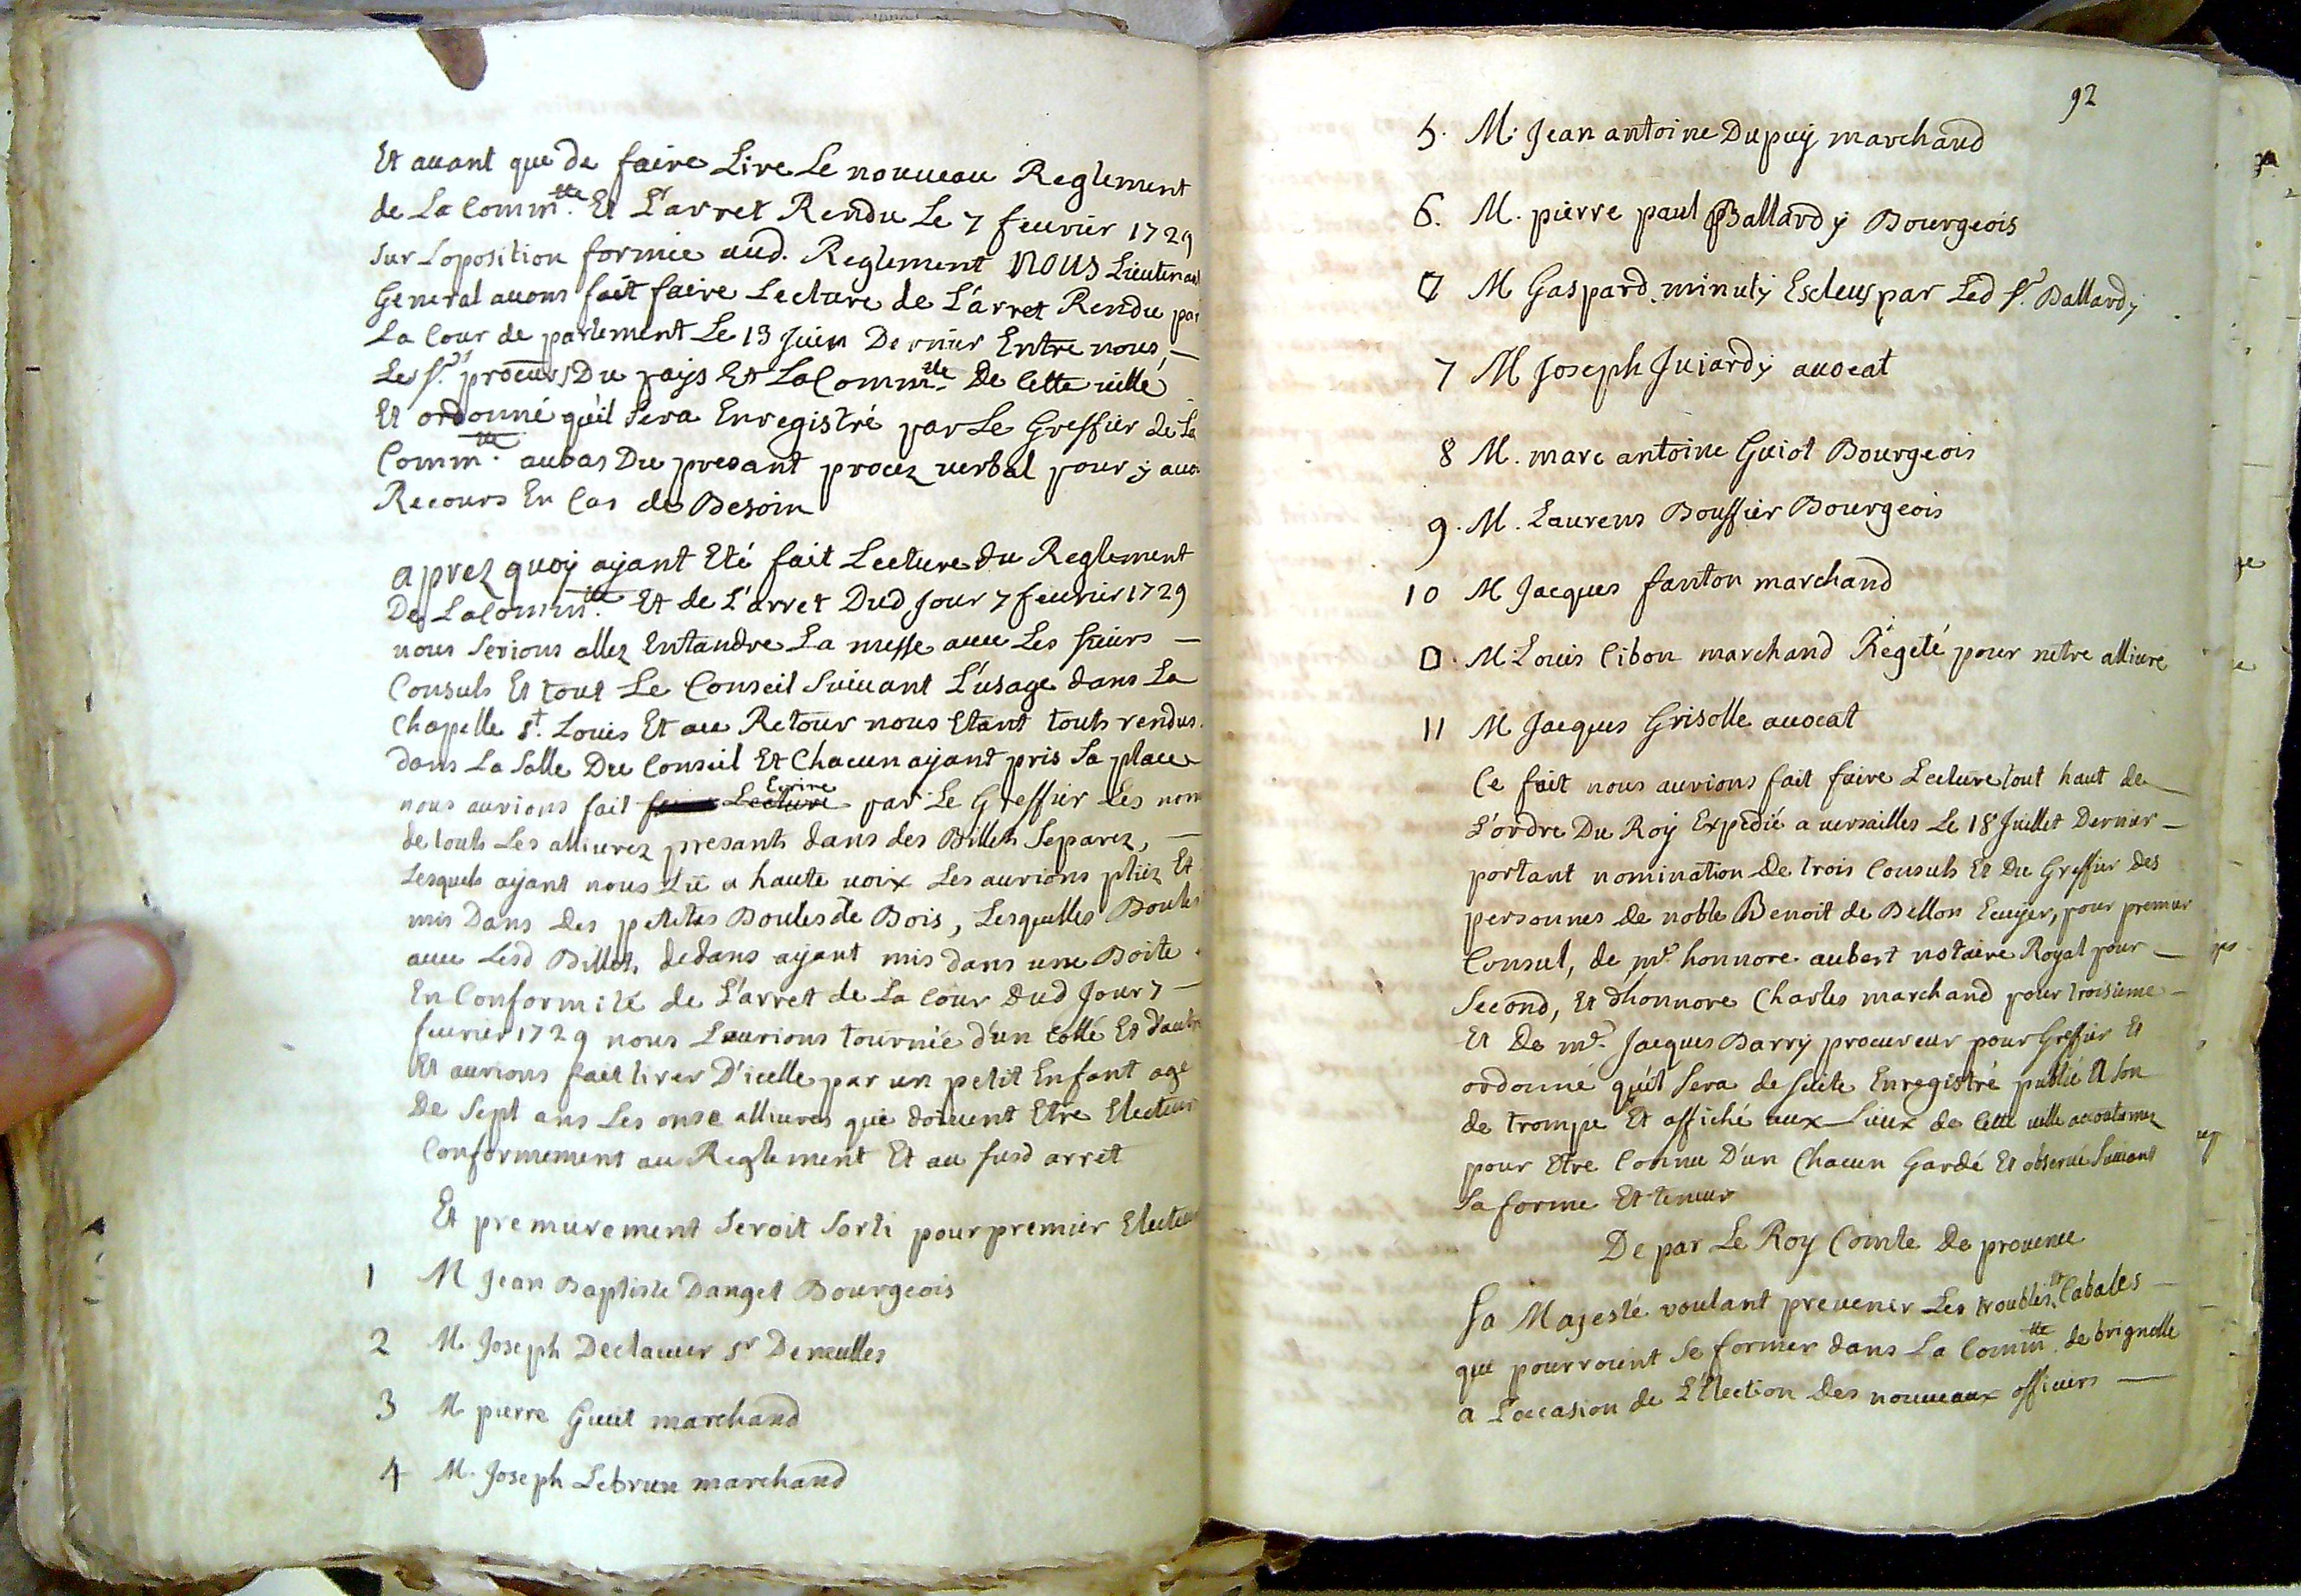 Et auant que de faire Lire Le nouueau Reglement
de La Comm.te Et L'arret Rendu Le 7 feurier 1729
Sur Loposition formée aud. Reglement NOUS Lieutenant
General auons fait faire Lecture de L'arret Rendu par
La Cour de parlement Le 13 Juin Dernier Entre nous, —
Les Srs procurs Du pays Et La Comm.te De Cette uille
Et ordonné qu'il Sera Enregistré par Le Greffier de La
Comm.te aubas Du presant procez uerbal pour y auoir
Recours En Cas de Besoin
aprez quoy ayant Eté fait Lecture du Reglement
De La Comm.te Et de L'arret Dud Jour 7 feurier 1729
nous Serions allez Entandre La messe auec Les sieurs —
Consuls Et tout Le Conseil Suiuant L'usage dans La
Chapelle St. Louis Et au Retour nous Etant touts rendus
dans La Salle Du Conseil Et Chacun ayant pris Sa place
Ecrire
nous aurions fait Lecture par Le Greffier Les nom
de touts Les alliurez presants dans des Billets Separez, —
Lesquels ayant nous Lû a haute uoix Les aurions pliez Et
mis Dans des petites Boules de Bois, Lesquelles Boules
auec Lesd Billets dedans ayant mis dans une Boite
En Conformité de L'arret de La Cour dud Jour 7 —
feurier 1729 nous Laurions tournée d'un Cotté Et d'autre
Et aurions fait tirer D'icelle par un petit Enfant agé
De Sept ans Les onse alliures que doiuent Etre Electeur
Conformement au Reglement Et au susd arret
Et premierement Seroit Sorti pour premier Electeur
1 M Jean Baptiste Danget Bourgeois
2 M. Joseph Declauier Sr De neulles
3 M pierre Gueit marchand
4 M. Joseph Lebrun marchand
92
5. M. Jean antoine Dupuy marchand
6. M. pierre paul Ballardy Bourgeois
M Gaspard minuty Escleus par Led Sr. Ballardy
7 M Joseph Juiardy auocat
8 M. marc antoine Guiot Bourgeois
9. M. Laurens Bouffier Bourgeois
10 M Jacques fanton marchand
M Louis Cibon marchand Régeté pour netre alliure
11 M Jacques Grisolle auocat
Ce fait nous aurions fait faire Lecture tout haut de
L'ordre Du Roy Expedié a uersailles Le 18 Juillet Dernier —
portant nomination de trois Consuls Et Du Greffier des
personnes de noble Benoit de Bellon Ecuyer, pour premier
Consul, de me. honnore aubert notaire Royal pour —
Second, Et dhonnore Charles marchand pour troisieme —
Et De me. Jacques Barry procureur pour Greffier Et
ordonné qu'il Sera de Suite Enregistré publié A Son
de trompe Et affiché aux Lieux de Cette uille accoutumez
pour Etre Connu D'un Chacun Gardé Et obserué Suiuant
Sa forme Et teneur
De par Le Roy Comte De prouence
Sa Majesté voulant preuenir Les troubles, et Cabales —
qui pourroient Se former dans La Comm.te de brignolle
a Loccasion de L'Election des nouueaux officiers —